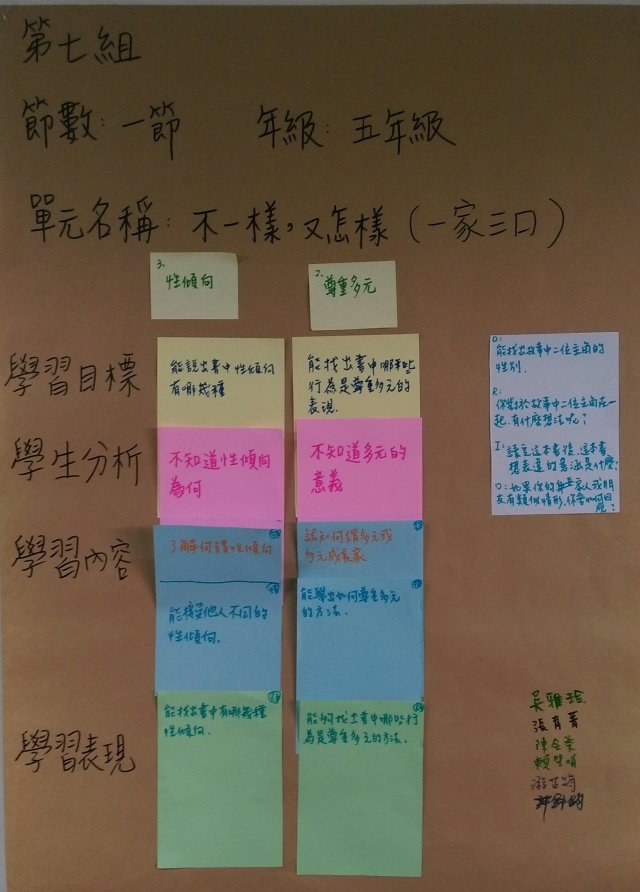 第七組
節數：一節 年級：五年級
單元名稱：不一樣，又怎樣（一家三口）
3.
性傾向
2.
尊重多元
學習目標
能說出書中性傾向
有哪幾種
能找出書中哪些
行為是尊重多元的
表現.
O:
能找出故事中二位主角的
性別.
R:
你對於故事中二位主角在一
起,有什麼想法呢?
I:讀完這本書後,這本書
想表達的意涵是什麼?
D:如果你的家人或朋
友有類似情形,你會如何因
應?
學生分析
不知道性傾向
為何
不知道多元的
意義
學習內容
了解何謂性傾向
認知何謂多元或
多元成家
能接受他人不同的
性傾向.
能學出如何尊重多元
的方法.
學習表現
能找出書中有哪幾種
性傾向.
能夠找出書中哪些行
為是尊重多元的方法.
吳雅
張育菁
陳
賴
游芷
許